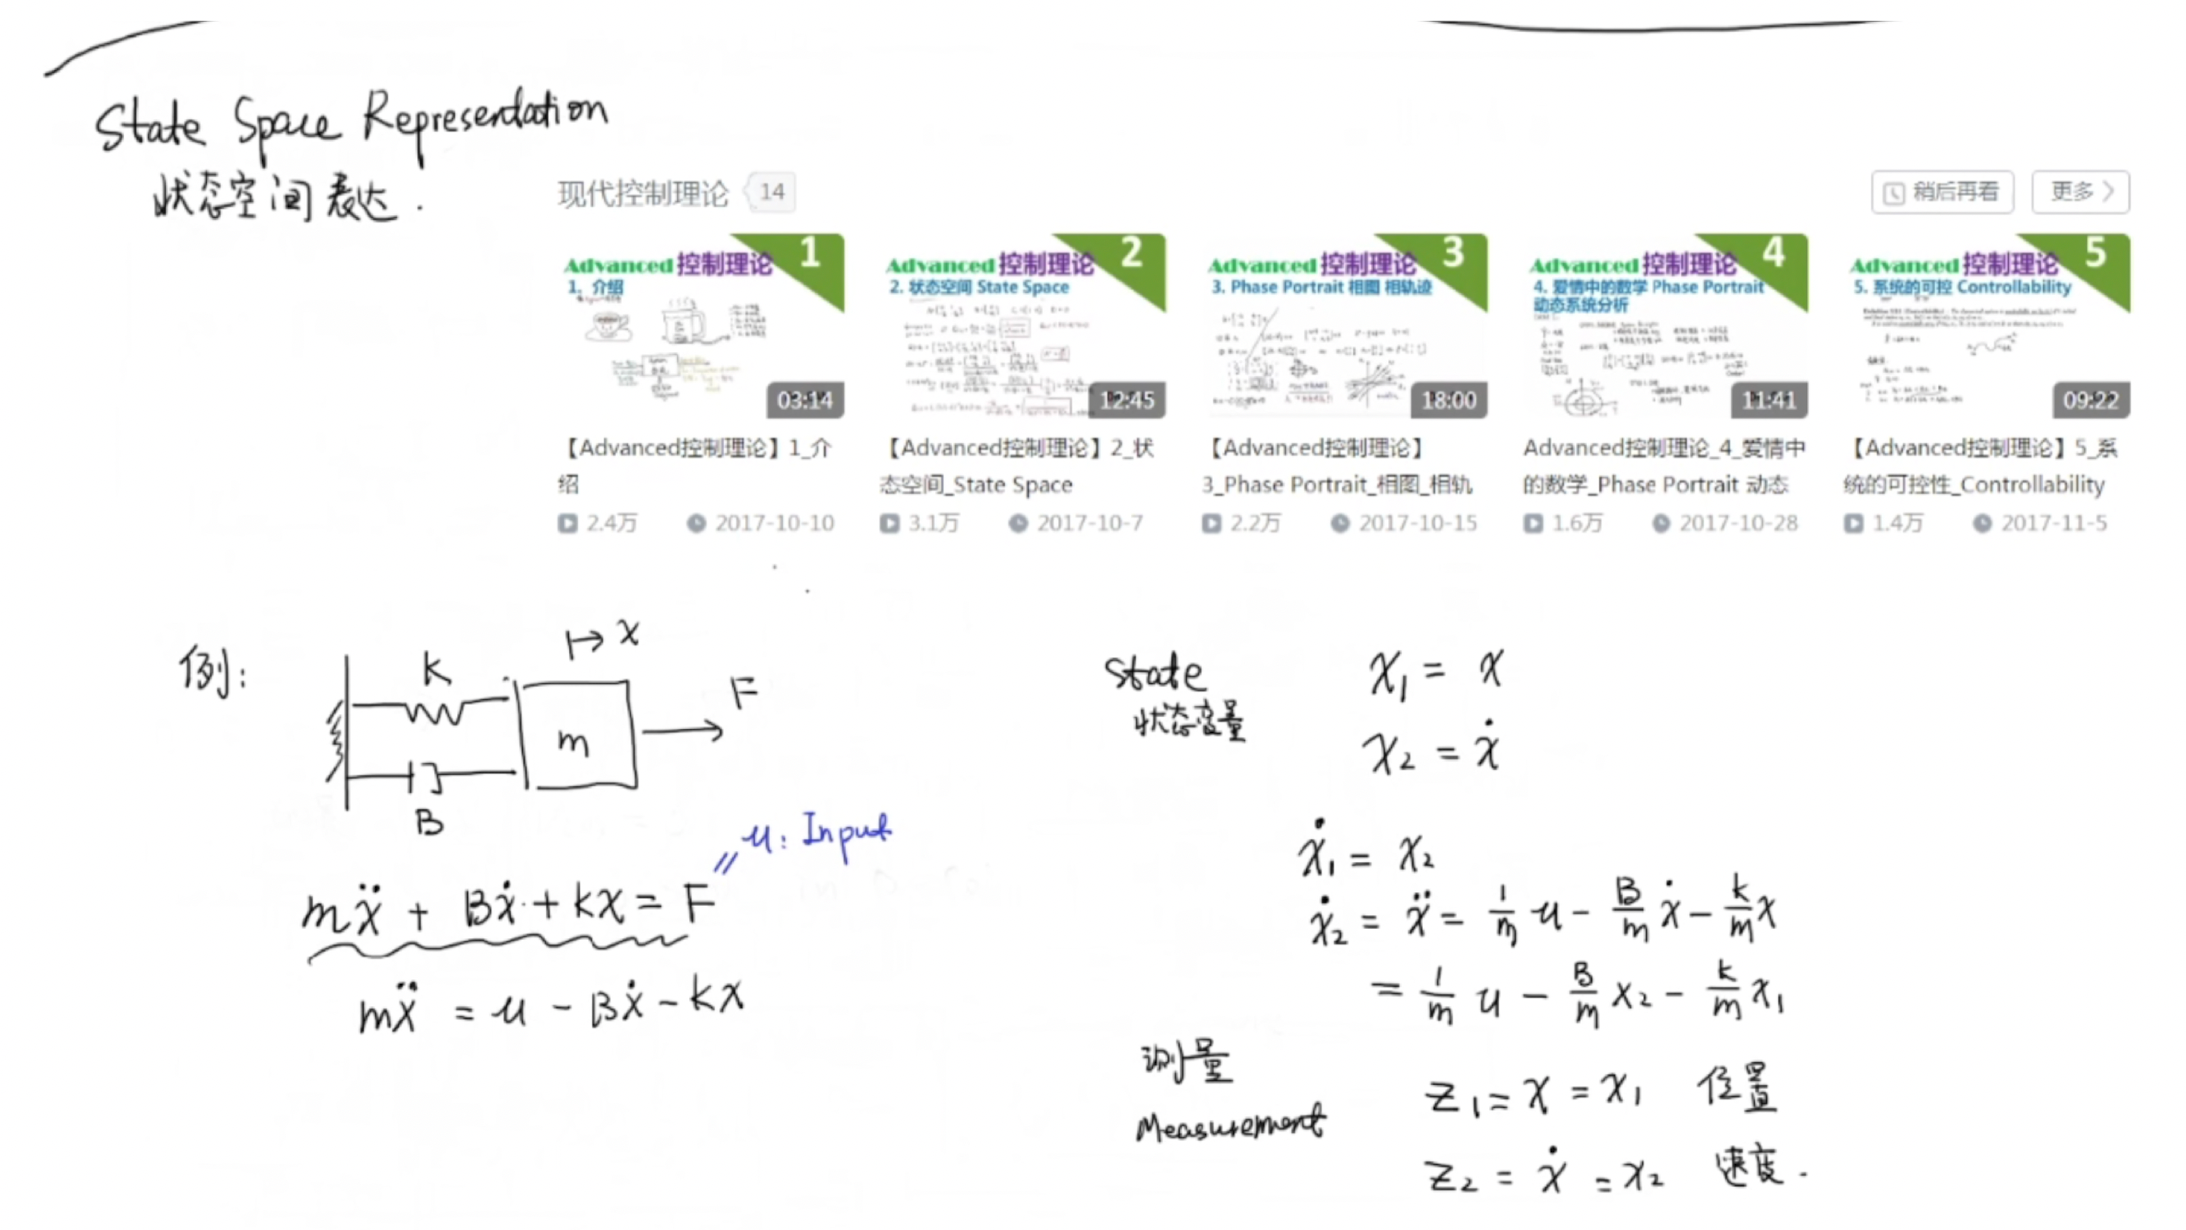 State Space Representation
状态空间表达.
现代控制理论 14
稍后再看 更多
Advanced 控制理论 1
1. 介绍
03:14
【Advanced控制理论】1_介
绍
2.4万 2017-10-10
Advanced 控制理论 2
2. 状态空间 State Space
12:45
【Advanced控制理论】2_状
态空间_State Space
3.1万 2017-10-7
Advanced 控制理论 3
3. Phase Portrait 相图 相轨迹
18:00
【Advanced控制理论】
3_Phase Portrait_相图_相轨
2.2万 2017-10-15
Advanced 控制理论 4
4. 爱情中的数学 Phase Portrait
动态系统分析
11:41
Advanced控制理论_4_爱情中
的数学_Phase Portrait 动态
1.6万 2017-10-28
Advanced 控制理论 5
5. 系统的可控 Controllability
09:22
【Advanced控制理论】5_系
统的可控性_Controllability
1.4万 2017-11-5
例:
k
x
m
F
B
u: Input
mẍ + Bẋ + kx = F
mẍ = u - Bẋ - kx
State
状态变量
x₁ = x
x₂ = ẋ
ẋ₁ = x₂
ẋ₂ = ẍ = 1/m u - B/m ẋ - k/m x
= 1/m u - B/m x₂ - k/m x₁
测量
Measurement
z₁ = x = x₁ 位置
z₂ = ẋ = x₂ 速度.